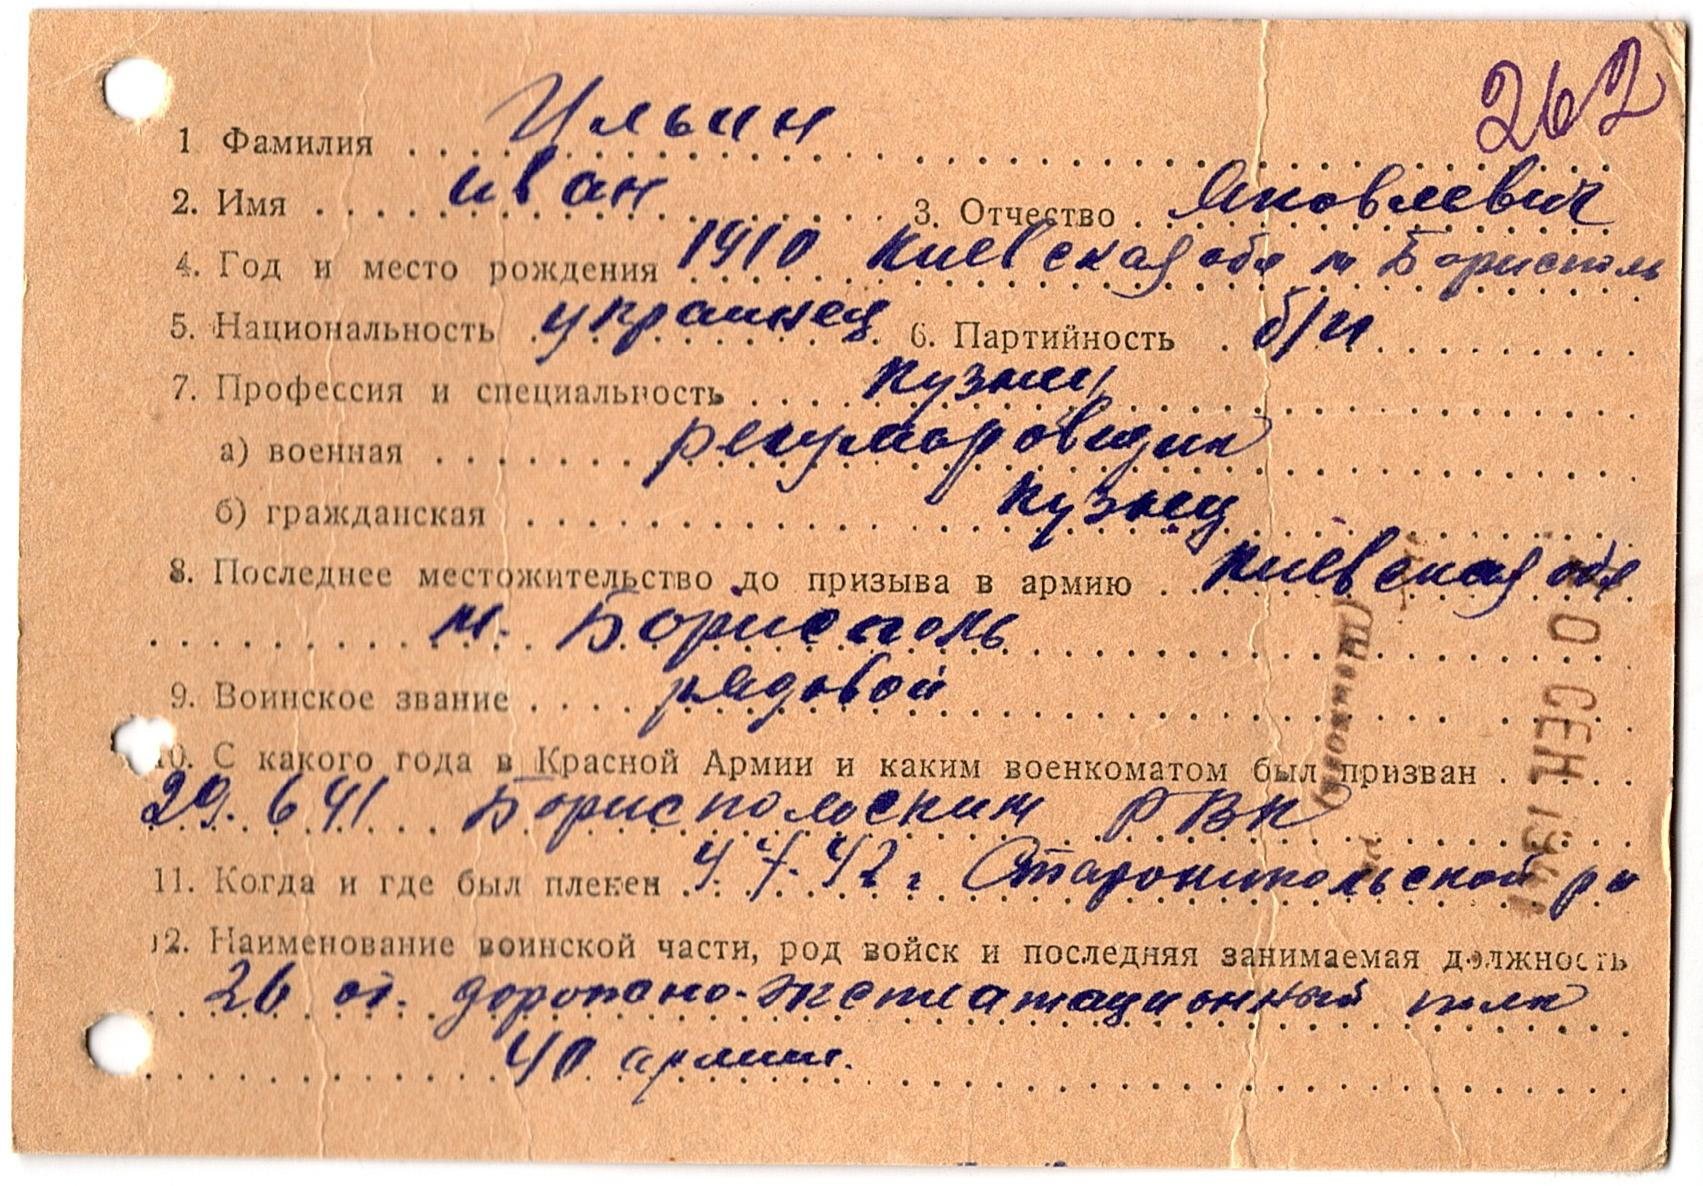 262
1 Фамилия Ильин
2. Имя иван 3. Отчество Яковлевич
4. Год и место рождения 1910 Киевская обл м Борисполь
5. Национальность украинец 6. Партийность б/п
7. Профессия и специальность кузнец
а) военная регулировщик
б) гражданская кузнец
8. Последнее местожительство до призыва в армию Киевская обл
м. Борисполь
9. Воинское звание рядовой
10. С какого года в Красной Армии и каким военкоматом был призван
29.6 41 Бориспольским РВК
11. Когда и где был плекен 4 7. 42 г Староникольской рн
12. Наименование воинской части, род войск и последняя занимаемая должность
26 от. дорожно-эксплатационный полк
40 армии.
СЕН